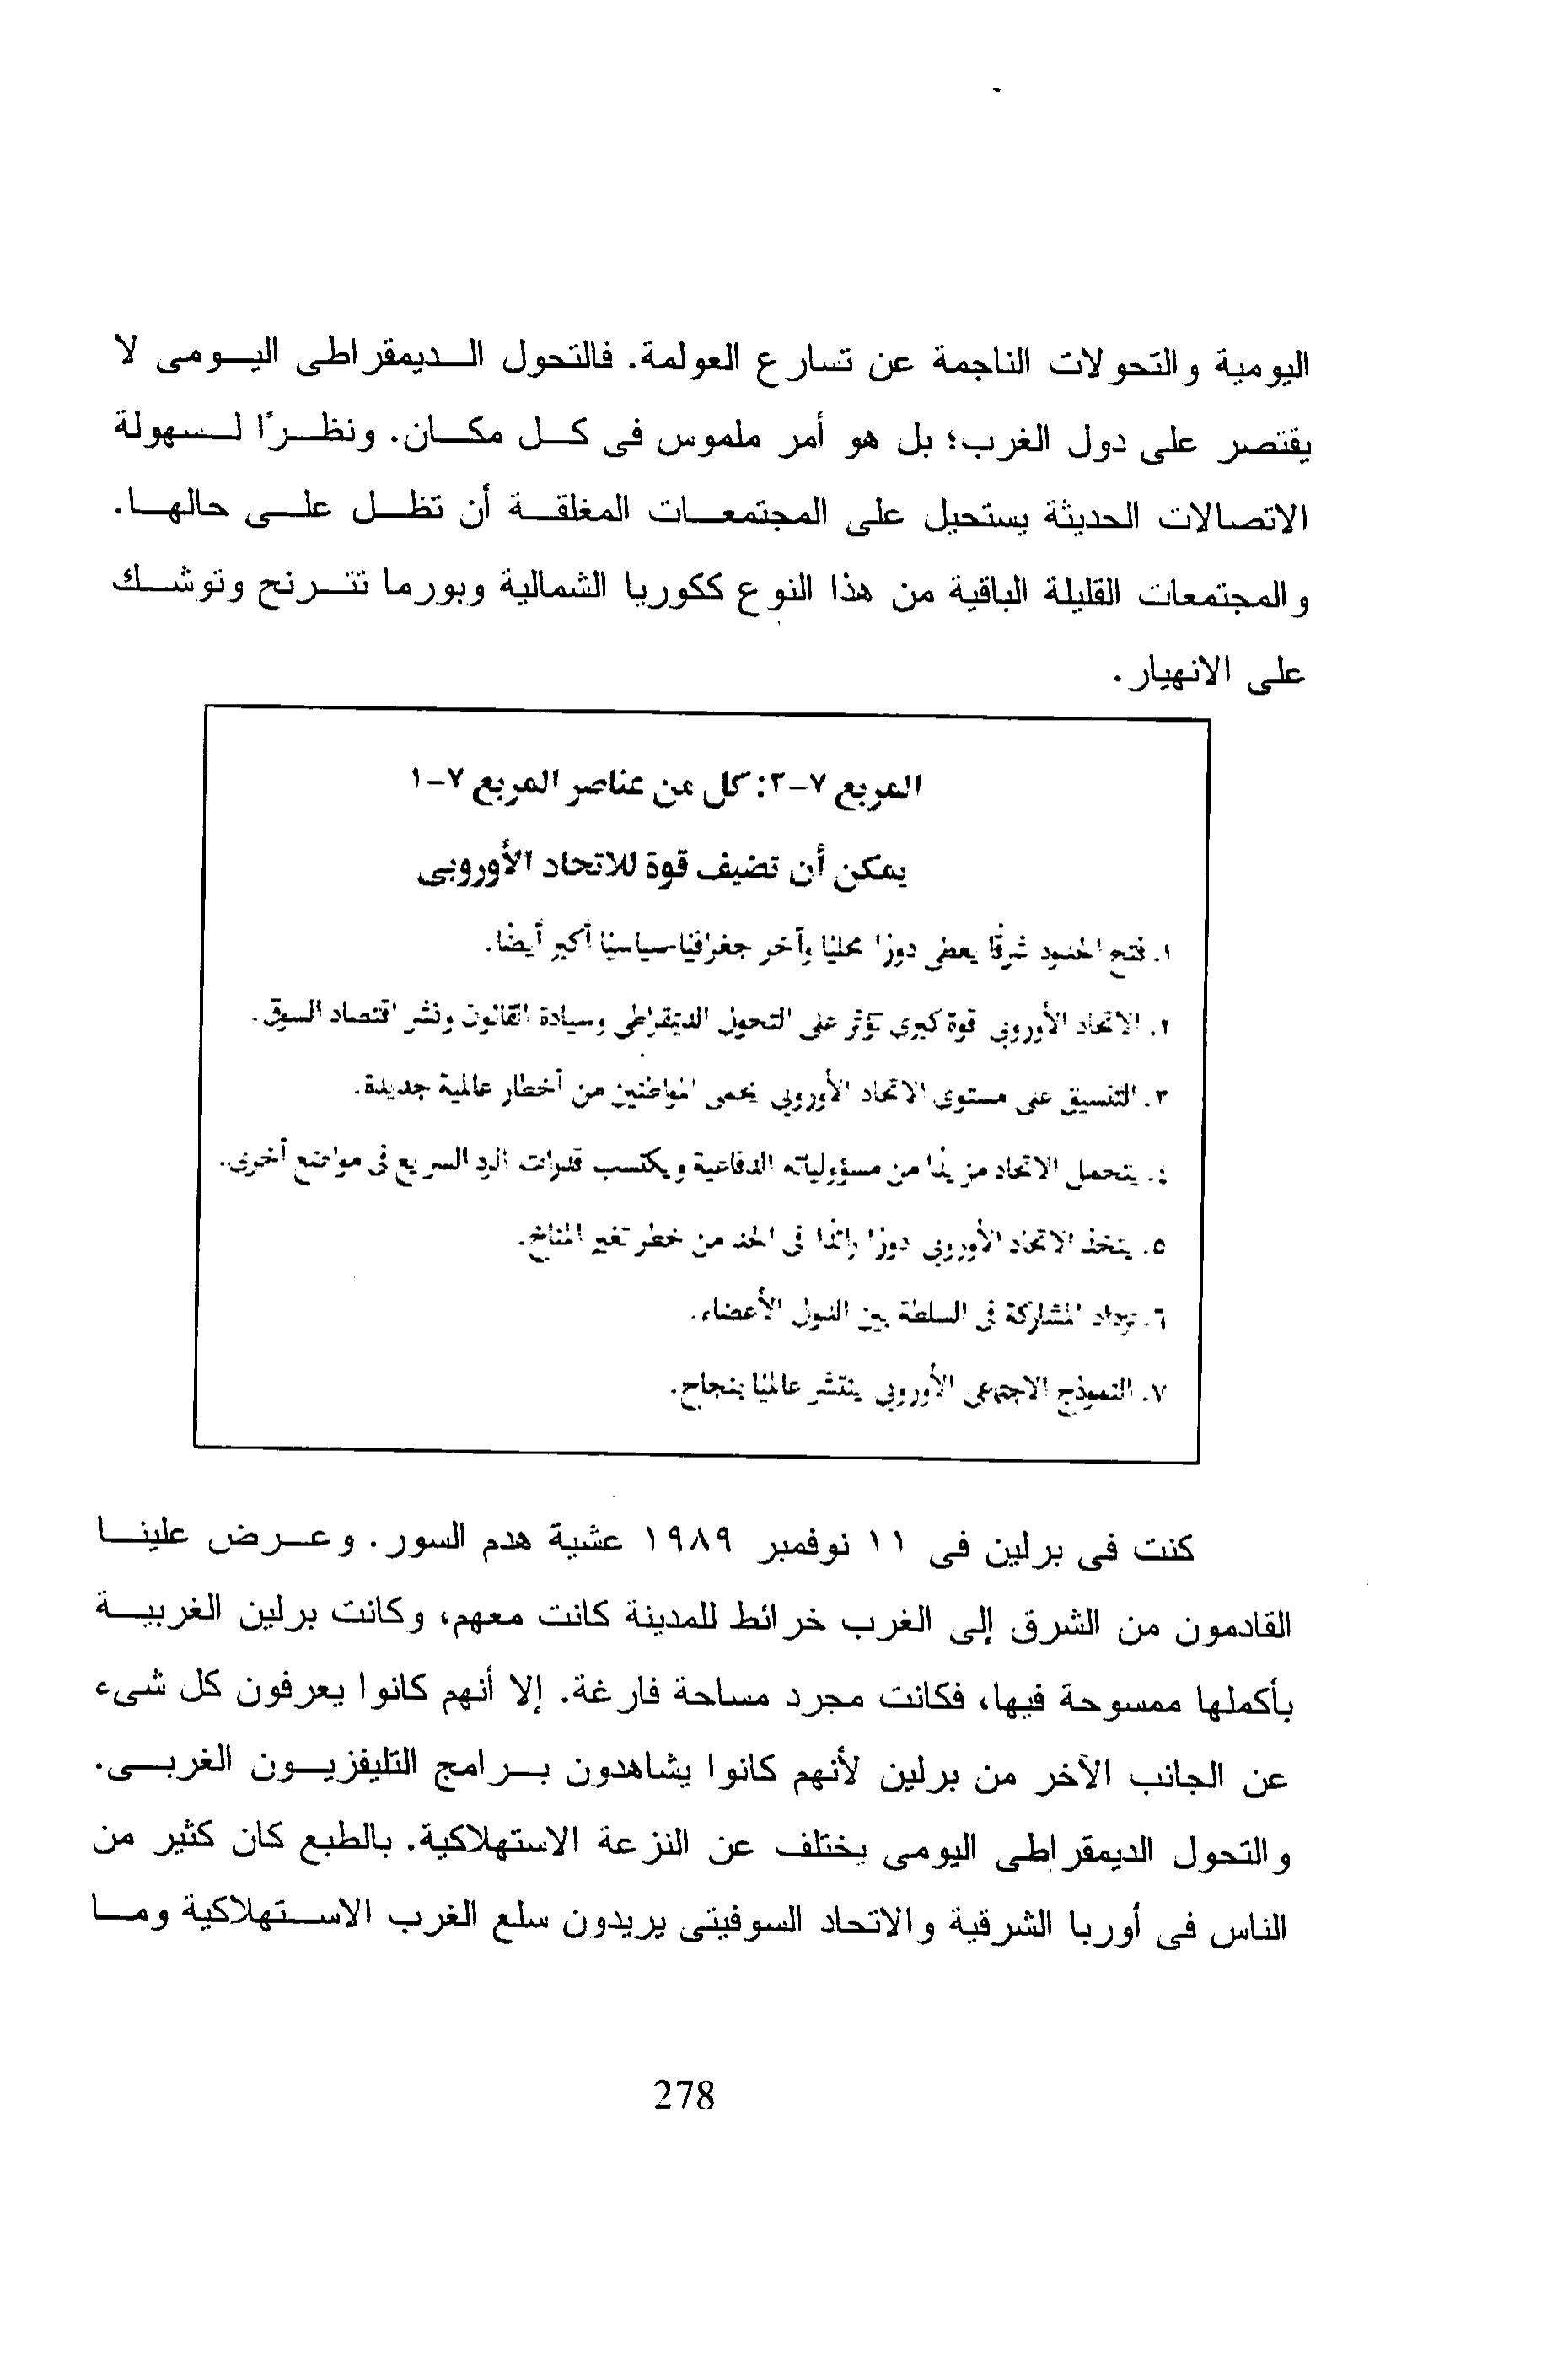 اليومية والتحولات الناجمة عن تسارع العولمة. فالتحول الديمقراطى اليومى لا
يقتصر على دول الغرب؛ بل هو أمر ملموس فى كل مكان. ونظرًا لسهولة
الاتصالات الحديثة يستحيل على المجتمعات المغلقة أن تظل على حالها.
والمجتمعات القليلة الباقية من هذا النوع ككوريا الشمالية وبورما تترنح وتوشك
على الانهيار.
المربع ٧-٣: كل من عناصر المربع ٧-١
يمكن أن تضيف قوة للاتحاد الأوروبى
١. فتح الحدود شرقًا يعطى دورًا محليًا وآخر جغرافيًا-سياسيًا أكبر أيضًا.
٢. الاتحاد الأوروبى قوة كبرى تؤثر على التحول الديمقراطى وسيادة القانون ونشر اقتصاد السوق.
٣. التنسيق على مستوى الاتحاد الأوروبى يحمى المواطنين من أخطار عالمية جديدة.
٤. يتحمل الاتحاد مزيدًا من مسؤولياته الدفاعية ويكتسب قدرات الرد السريع فى مواضع أخرى.
٥. يتخذ الاتحاد الأوروبى دورًا رائدًا فى الحد من خطر تغير المناخ.
٦. تزداد المشاركة فى السلطة بين الدول الأعضاء.
٧. النموذج الاجتماعى الأوروبى ينتشر عالميًا بنجاح.
كنت فى برلين فى ١١ نوفمبر ١٩٨٩ عشية هدم السور. وعرض علينا
القادمون من الشرق إلى الغرب خرائط للمدينة كانت معهم، وكانت برلين الغربية
بأكملها ممسوحة فيها، فكانت مجرد مساحة فارغة. إلا أنهم كانوا يعرفون كل شىء
عن الجانب الآخر من برلين لأنهم كانوا يشاهدون برامج التليفزيون الغربى.
والتحول الديمقراطى اليومى يختلف عن النزعة الاستهلاكية. بالطبع كان كثير من
الناس فى أوربا الشرقية والاتحاد السوفيتى يريدون سلع الغرب الاستهلاكية وما
278